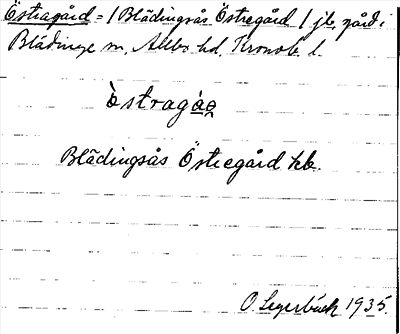 Östragård = / Blädingsås Östregård / jb, gård i
Blädinge sn, Allbo hd, Kronob. l.
östragɑ̀ɑ
Blädingsås Östregård kb.
O Legerbäck 1935.